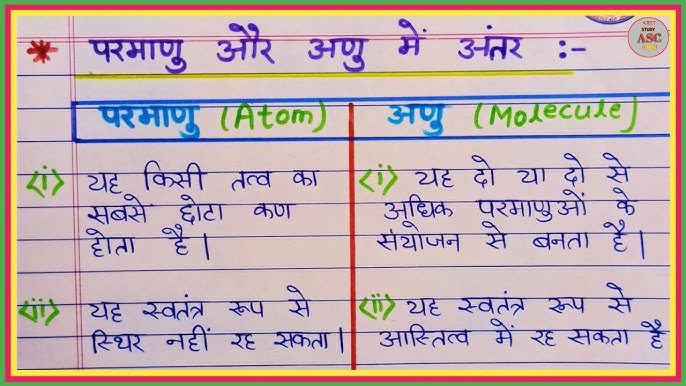 AJEET
STUDY
ASC
* परमाणु और अणु में अंतर :-
परमाणु (Atom)
अणु (Molecule)
<i> यह किसी तत्व का
सबसे छोटा कण
होता है |
<i> यह दो या दो से
अधिक परमाणुओं के
संयोजन से बनता है |
<ii> यह स्वतंत्र रूप से
स्थिर नहीं रह सकता |
<ii> यह स्वतंत्र रूप से
आस्तित्व में रह सकता है